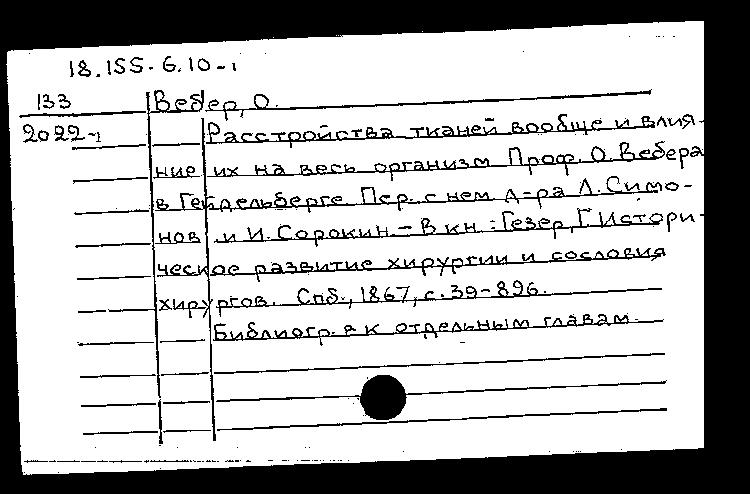 18.155-6.10-1
133 Вебер, О.
2022-1 Расстройства тканей вообще и влия-
ние их на весь организм Проф. О. Вебера
в Гейдельберге Пер. с нем д-ра Л. Симо-
нов и И. Сорокин. – В кн.: Гезер, Г. Истори-
ческое развитие хирургии и сословия
хирургов. Спб., 1867, с. 39-896.
Библиогр. в к отдельным главам.